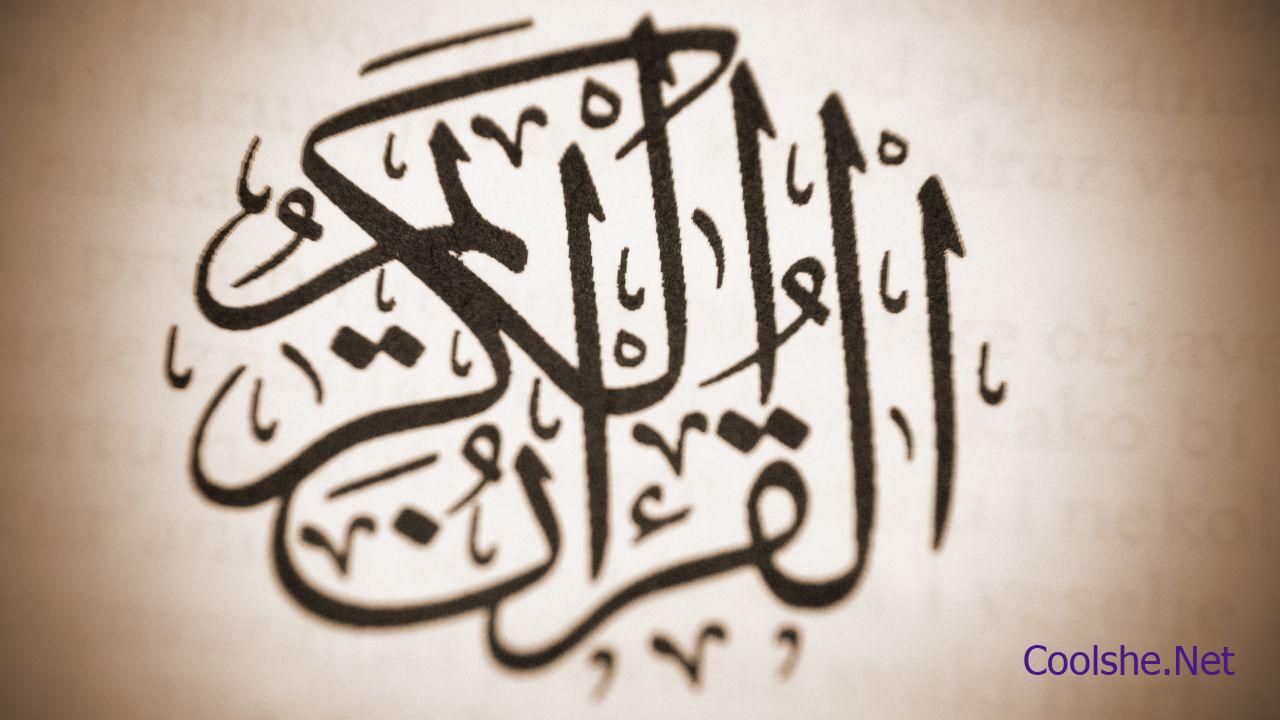 القُرْآنُ
الْكَرِيمُ
Coolshe.Net